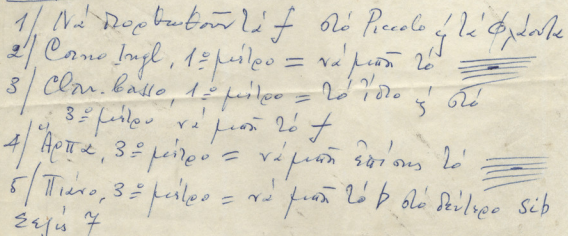 1/ Νά διορθωθοῦν τά f στό Piccolo ἤ τά Φλάουτα
2/ Corno Ingl, 1º μέτρο = νά μπῆ τό
3/ Clar. basso, 1º μέτρο = τό ἴδιο ἤ στό
3º μέτρο νά μπῆ τό f
4/ Ἅρπα, 3º μέτρο = νά μπῆ ἐπίσης τό
5/ Πιάνο, 3º μέτρο = νά μπῆ τό b στό δεύτερο sib
Σελίς 7